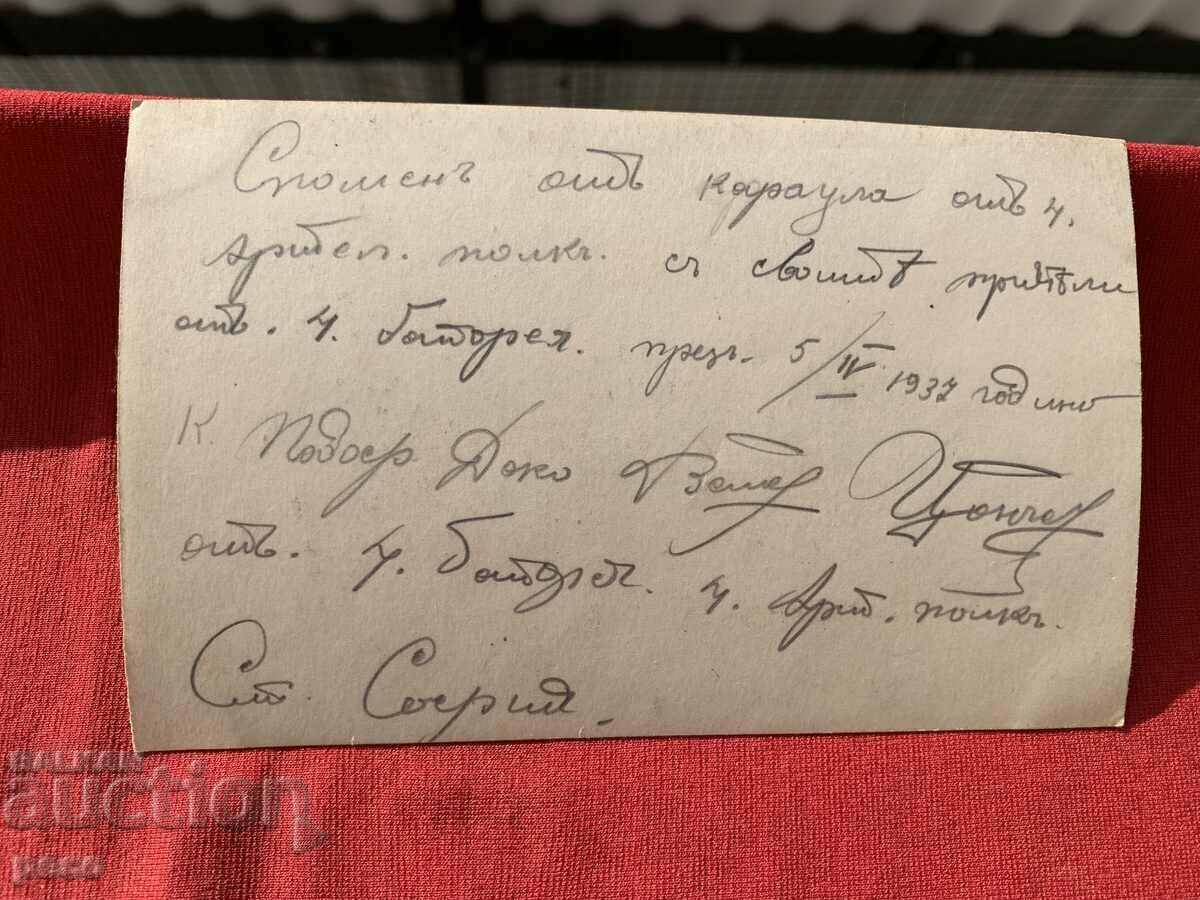 Споменъ отъ караула отъ 4.
артел. полкъ. съ своитѣ приятели
отъ. 4. батарея. презъ. 5/IV 1937 година
К. Подоф. Деко Цончев
отъ. 4. батарея. 4. Арт. полкъ.
Ст. София.
BALKAN
auction
poco